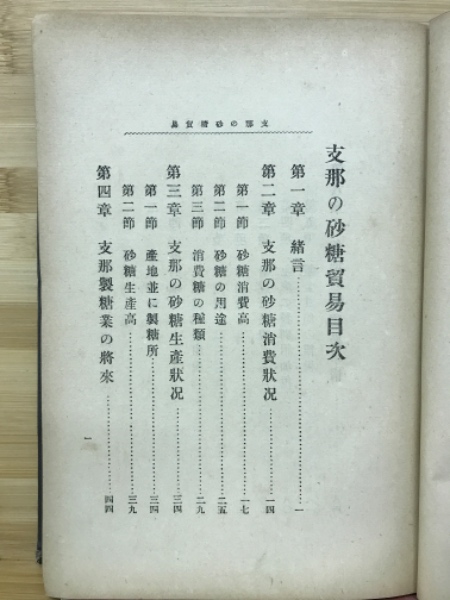 支那の砂糖貿易
支那の砂糖貿易目次
第一章 緒言……一
第二章 支那の砂糖消費狀況……一四
第一節 砂糖消費高……一七
第二節 砂糖の用途……二五
第三節 消費糖の種類……二九
第三章 支那の砂糖生產狀況……三四
第一節 產地並に製糖所……三四
第二節 砂糖生產高……三九
第四章 支那製糖業の將來……四四
一